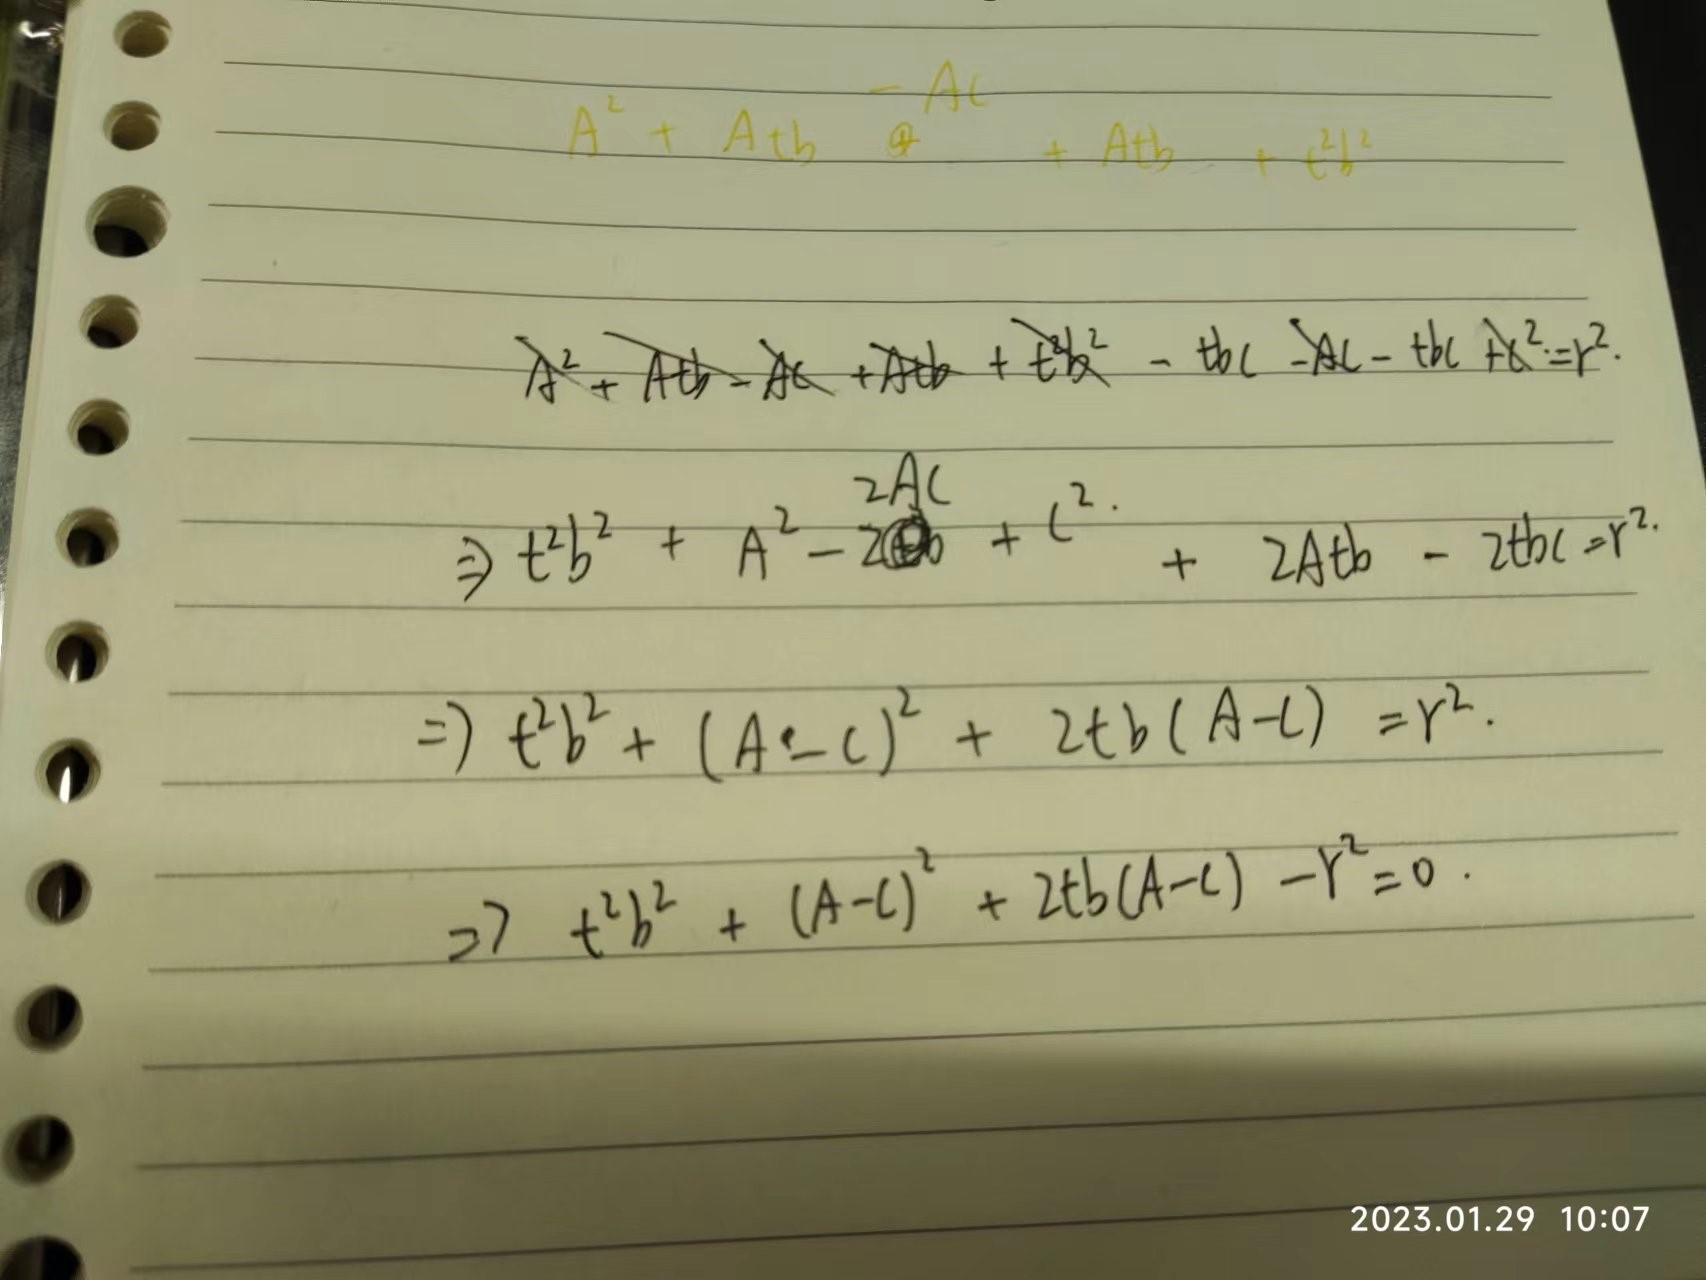 - AC
A² + Atb + Atb + t²b²
A² + Atb - AC + Atb + t²b² - tbC - AC - tbC + C² = r².
2AC
⇒ t²b² + A² - 2 + C². + 2Atb - 2tbC = r².
⇒ t²b² + (A - C)² + 2tb(A-C) = r².
⇒ t²b² + (A-C)² + 2tb(A-C) - r² = 0.
2023.01.29 10:07